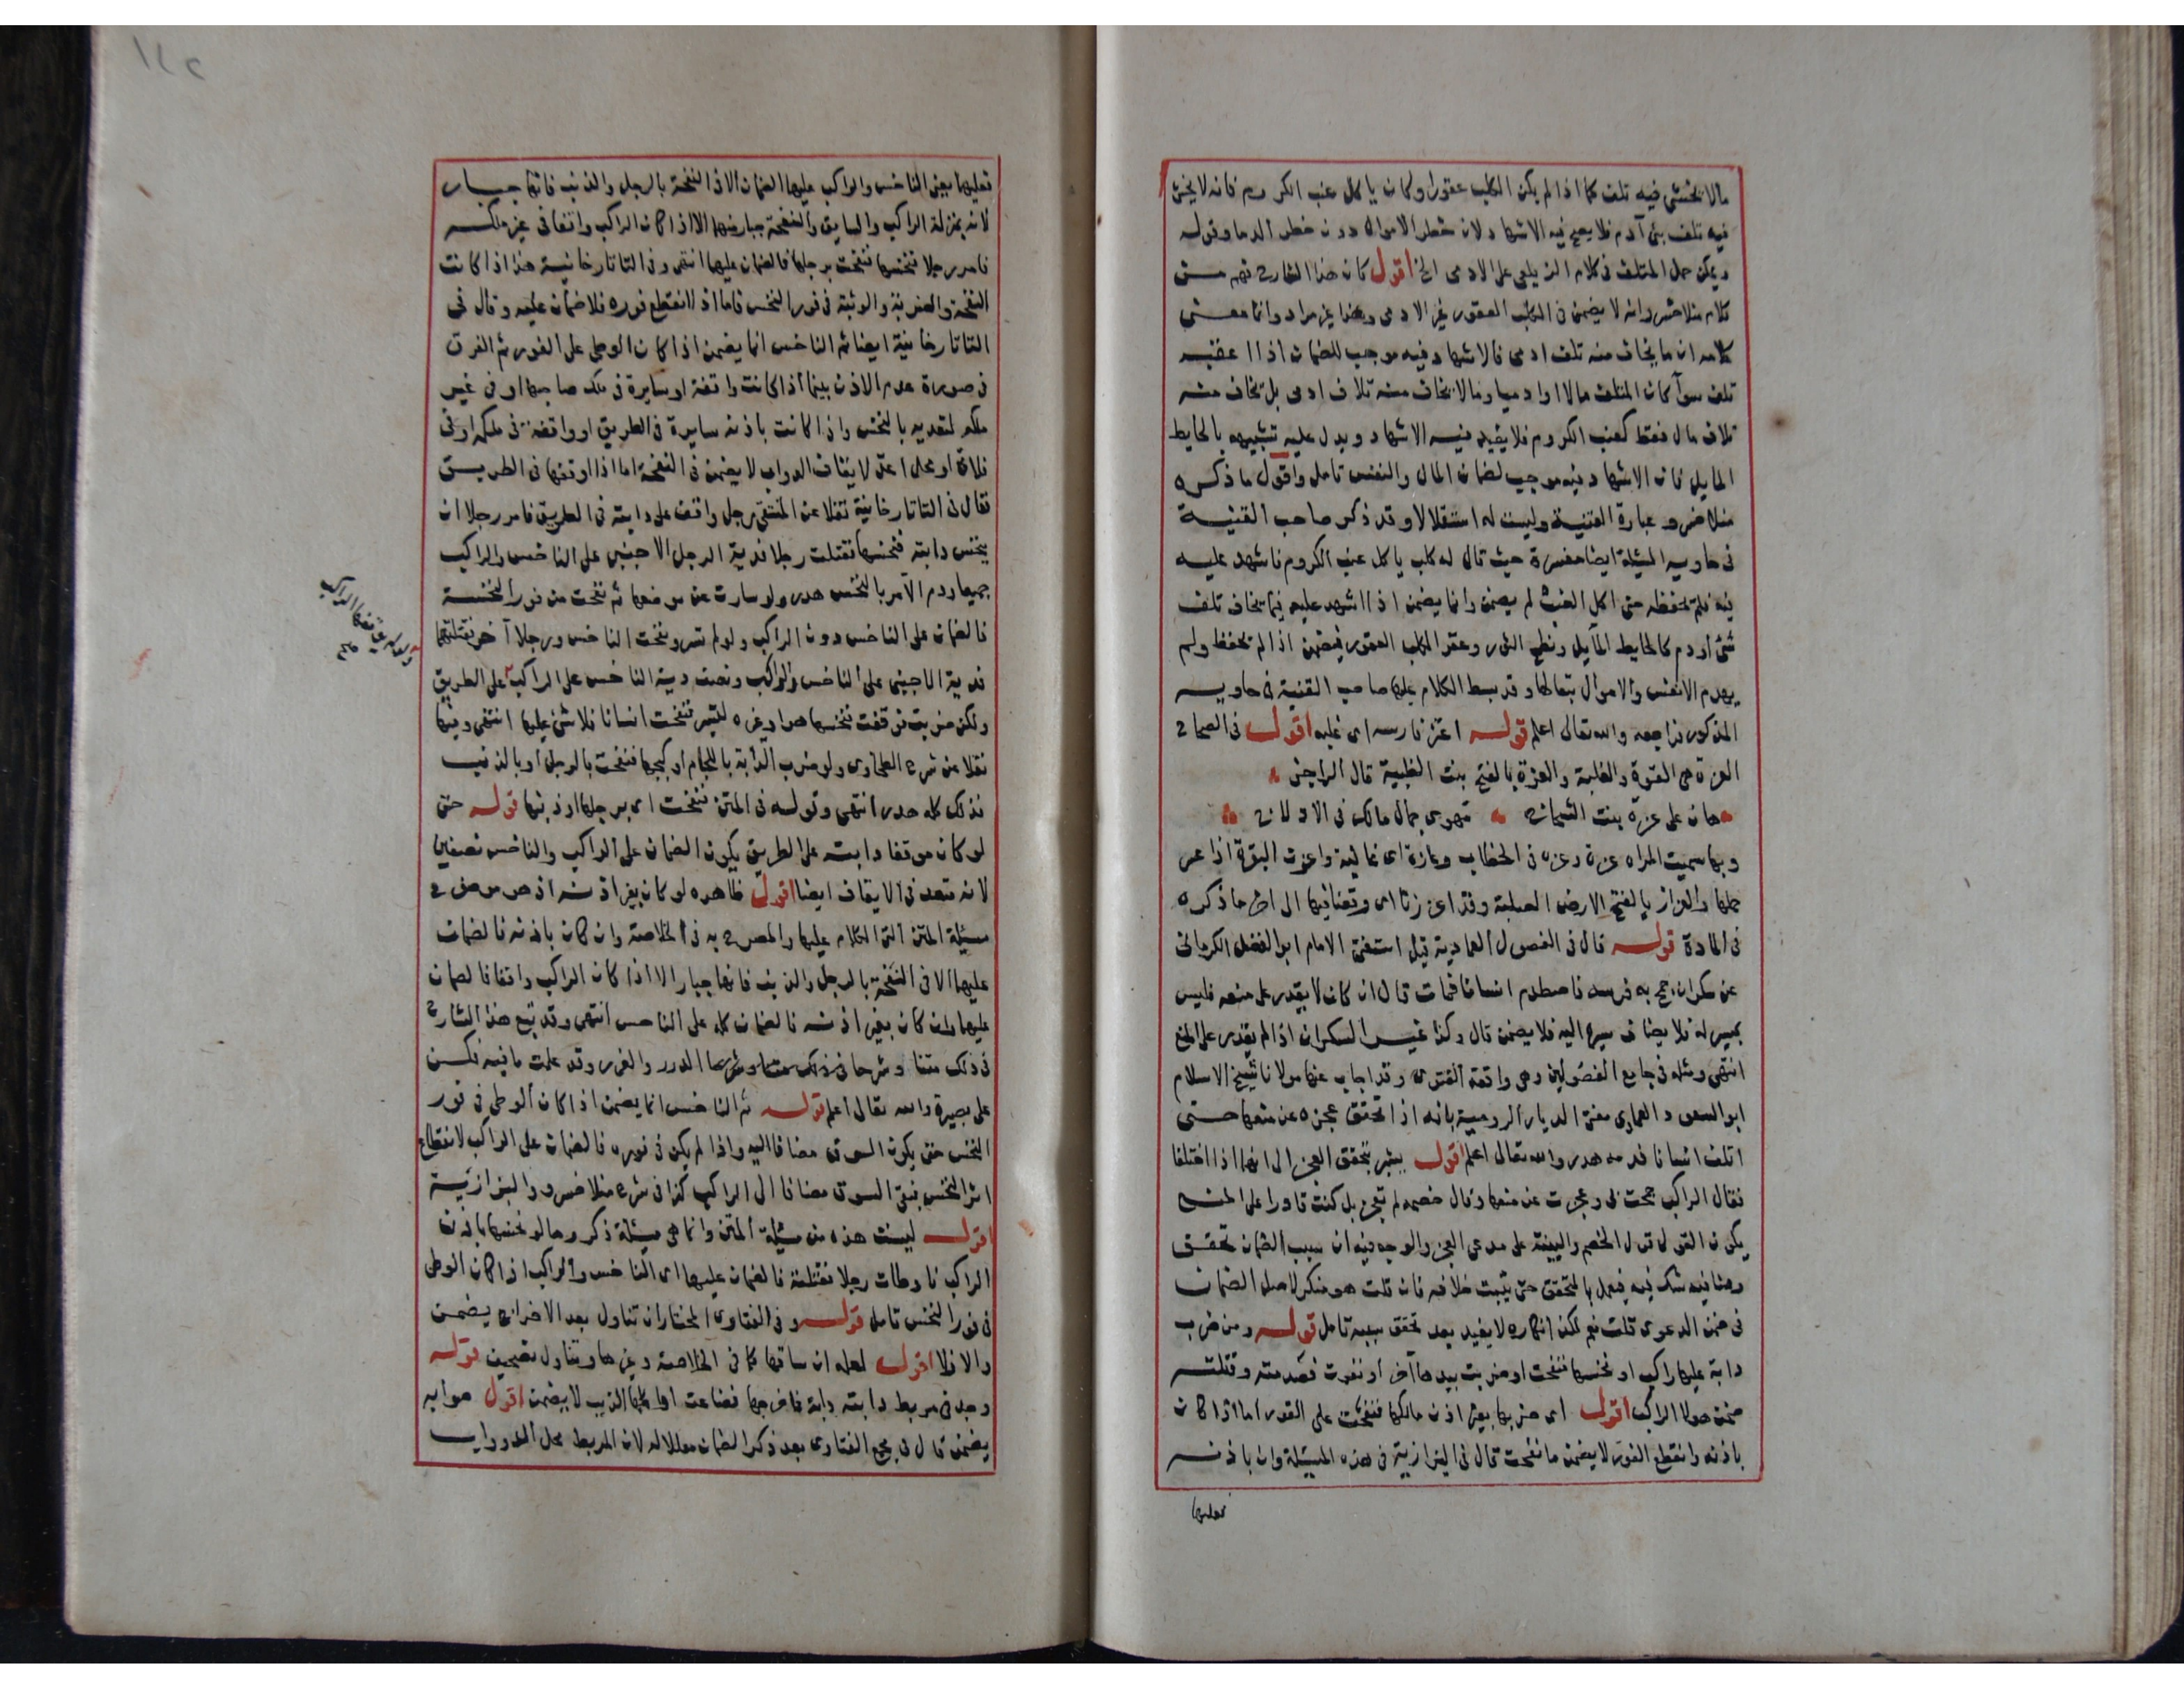 مالا يخشى فيه تلف كما اذا لم يكن الكلب عقورا وكان ياكل عنب الكروم فانه لا يخشى
فيه تلف بنى آدم فلا يصح فيه الاشهاد ولان خطر الاموال دون خطر الدما وقوله
ويمكن حمل المتلف فى كلام الزيلعى على الادمى الخ اقول كان هذا الشارح فهم من
كلام منلا خسرو انه لا يضمن فى الكلب العقور غير الادمى وهذا غير مراد وانما معنى
كلامه ان ما يخاف منه تلف ادمى فالاشهاد فيه موجب للضمان اذا اعقبه
تلف سوآ كان المتلف مالا او ادميا وما لا يخاف منه تلاف ادمى بل يخاف منه
تلاف مال فقط كعنب الكروم فلا يفيد فيه الاشهاد ويدل عليه تشبيهه بالحايط
المايل فان الاشهاد فيه موجب لضمان المال والنفس تامل واقول ما ذكره
منلا خسرو عبارة القنية وليست له استقلالا وقد ذكر صاحب القنية
فى حاويه المسئلة ايضا مفسرة حيث قال له كلب ياكل عنب الكروم فاشهد عليه
فيه فلم يحفظه حتى اكل العنب لم يضمن وانما يضمن اذا اشهد عليه فيما يخاف تلف
بنى ادم كالحايط المايل ونطح الثور وعقر الكلب العقور فيضمن اذا لم يحفظ ولم
يهدم الانفس والاموال تبعا لها وقد بسط الكلام عليها صاحب القنية فى حاويه
المذكور فراجعه والله تعالى اعلم قوله اعتز فارسه اى غلبه اقول فى الصحاح
العزة هى القوة والغلبة والعزة بالفتح بنت الظبية قال الراجز
هان على عزة بنت الشحاج تهوى جمال مالك فى الادلاج
وبها سميت المراه عزة وعزه فى الخطاب وعازة اى غالبه واعزت البقرة اذا عسر
حملها والعزاز بالفتح الارض الصلبة وقد اعززنا اى وقعنا فيها الى اخر ما ذكره
فى المادة قوله قال فى الفصول العمادية قيل استفتى الامام ابو الفضل الكرمانى
عن سكران جمح به فرسه فاصطدم انسانا فمات قال ان كان لا يقدر على منعه فليس
بمسير له فلا يضاف سيره اليه فلا يضمن قال وكذا غير السكران اذا لم يقدر على المنع
انتهى ومثله فى جامع الفصولين وهى واقعة الفتوى وقد اجاب عنها مولانا شيخ الاسلام
ابو السعود العمادى مفتى الديار الرومية بانه اذا تحقق عجزه عن منعها حتى
اتلف انسانا فدمه هدر والله تعالى اعلم اقول يشير بتحقق العجز الى انهما اذا اختلفا
فقال الراكب جمحت بى وعجزت عن منعها وقال خصمه لم تعجز بل كنت قادرا على المنع
يكون القول قول الخصم والبينة على مدعى العجز والوجه فيه ان سبب الضمان تحقق
وهنا فيه شك فيه فيعمل بالمتحقق حتى يثبت خلافه فان قلت هو منكر لاصل الضمان
فى ضمن الدعوى قلت نعم لكن انكاره لا يفيد بعد تحقق سببه تامل قوله ومن ضرب
دابة عليها راكب او نخسها فنفحت او ضربت بيدها آخر او نفرت فصدمته وقتلته
ضمن هو لا الراكب اقول اى ضربها بغير اذن مالكها فنفحت على الفور اما اذا كان
باذنه وانقطع الفور لا يضمن ما نفحت قال فى البزازية فى هذه المسئلة وان باذنه
فعليهما
فعليهما يعنى الناخس والراكب عليهما الضمان الا فى النفحة بالرجل والذنب فانها جبار
لانه بمنزلة الراكب والسايق والنفحة جبار منهما الا اذا كان الراكب واقفا فى غير ملكه
فامر رجلا فنخسها فنفحت برجلها فالضمان عليهما انتهى وفى التاتارخانية هذا اذا كانت
النفحة والضربة والوثبة فى فور النخس فاما اذا انقطع فوره فلا ضمان عليه وقال فى
التاتارخانية ايضا ثم الناخس انما يضمن اذا كان الوطى على الفور ثم الفرق
فى صورة عدم الاذن بينما اذا كانت واقفة او سايرة فى ملك صاحبها او فى غير
ملكه لتعديه بالنخس واذا كانت باذنه سايرة فى الطريق او واقفة فى ملكه او فى
فلاة او محل اعد لايقاف الدواب لا يضمن فى النفحة اما اذا اوقفها فى الطريق
فقال فى التاتارخانية نقلا عن المنتقى رجل واقف على دابته فى الطريق فامر رجلا ان
ينخس دابته فنخسها فقتلت رجلا فدية الرجل الاجنبى على الناخس والراكب
جميعا ودم الآمر بالنخس هدر ولو سارت عن موضعها ثم نفحت من فور النخسة
فالضمان على الناخس دون الراكب ولو لم تسر ونفحت الناخس ورجلا آخر فقتلتهما
فدية الاجنبى على الناخس والراكب ونصف دية الناخس على الراكب على الطريق
ولكن ضربت فوقفت فنخسها هو او غيره لتسير فنفحت انسانا فلا شئ عليهما انتهى وفيها
نقلا عن شرح الطحاوى ولو ضرب الدابة باللجام او كبحها فنفحت بالرجل او بالذنب
فذلك كله هدر انتهى وقوله فى المتن فنفحت اى برجلها او ذنبها قوله حتى
لو كان موقفا دابته على الطريق يكون الضمان على الراكب والناخس نصفين
لانه متعد فى الايقاف ايضا اقول ظاهره لو كان بغير اذنه اذ هو موضوع
مسئلة المتن التى الكلام عليها والمصرح به فى الخلاصة وان كان باذنه فالضمان
عليهما الا فى النفحة بالرجل والذنب فانها جبار الا اذا كان الراكب واقفا فالضمان
عليهما وان كان بغير اذنه فالضمان كله على الناخس انتهى وقد تبع هذا الشارح
فى ذلك متنا وشرحا الدرر والغرر وقد علمت ما فيه فكن
على بصيرة والله تعالى اعلم قوله ثم الناخس انما يضمن اذا كان الوطى فى فور
النخس حتى يكون السوق مضافا اليه واذا لم يكن فى فوره فالضمان على الراكب لانقطاع
اثر النخس فبقى السوق مضافا الى الراكب كذا فى شرح منلا خسرو والبزازية
اقول ليست هذه من مسئلة المتن وانما هى مسئلة ذكروها لو نخسها باذن
الراكب فاوطات رجلا فقتلته فالضمان عليهما اى الناخس والراكب اذا كان الوطى
فى فور النخس تامل قوله وفى الفتاوى المختار ان تناول بعد الاخراج يضمن
والا فلا اقول لعله ان ساقها كما فى الخلاصة وغيرها وتناول تصحيف قوله
وجد فى مربط دابته دابة فاخرجها فضاعت او اكلها الذيب لا يضمن اقول صوابه
يضمن قال فى مجمع الفتاوى بعد ذكر الضمان معللا له لان المربط محل الدواب